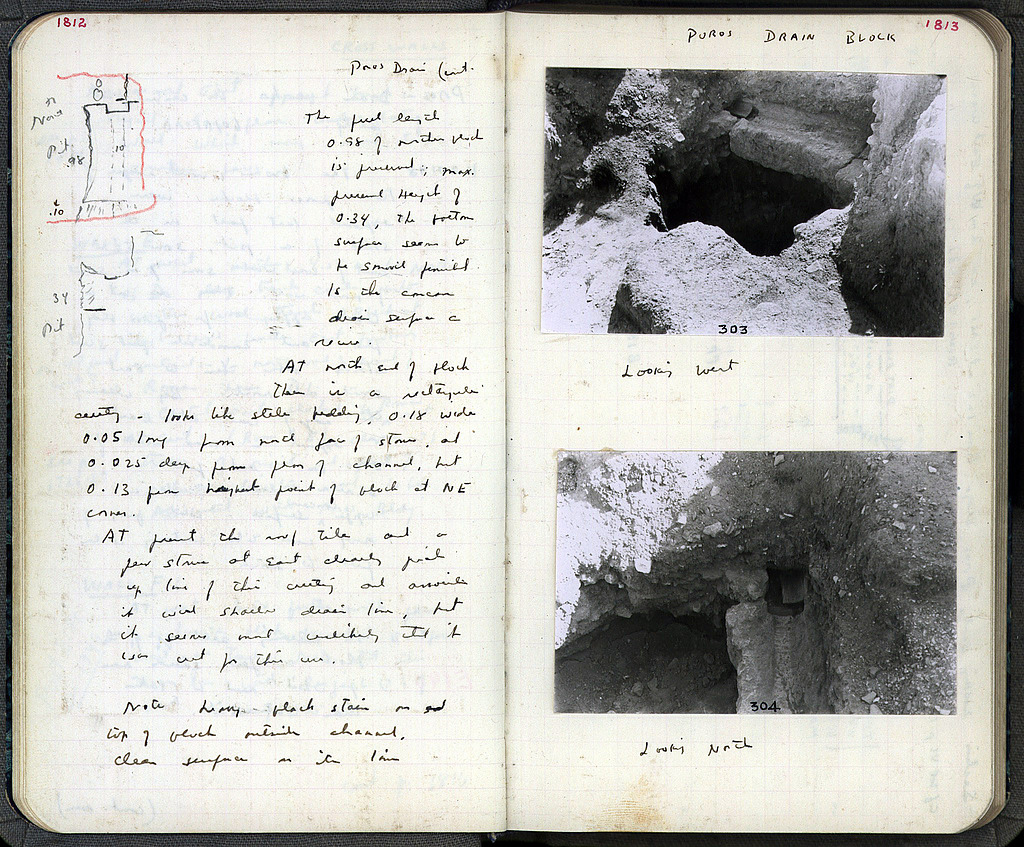 1812
Poros Drain (cont.
The full length
0.98 of block
is preserved; max.
present height of
0.34, the bottom
surface seems to
be
Is the concave
drain surface a
reuse.
At north end of block
there is a rectangular
cutting - looks like stele bedding, 0.18 wide
0.05 long from north face of stone, and
0.025 deep from floor of channel, but
0.13 from highest point of block at NE
corner.
At present the roof tile and a
few stones at East clearly pick
up line of this cutting and
it with drain line, but
it seems most unlikely that it
was cut for this use.
Note heavy black stain on
top of block outside channel,
clean surface in its line
Pit
.98
10
.10
34
Pit
1813
POROS DRAIN BLOCK
303
Looking West
304
Looking North